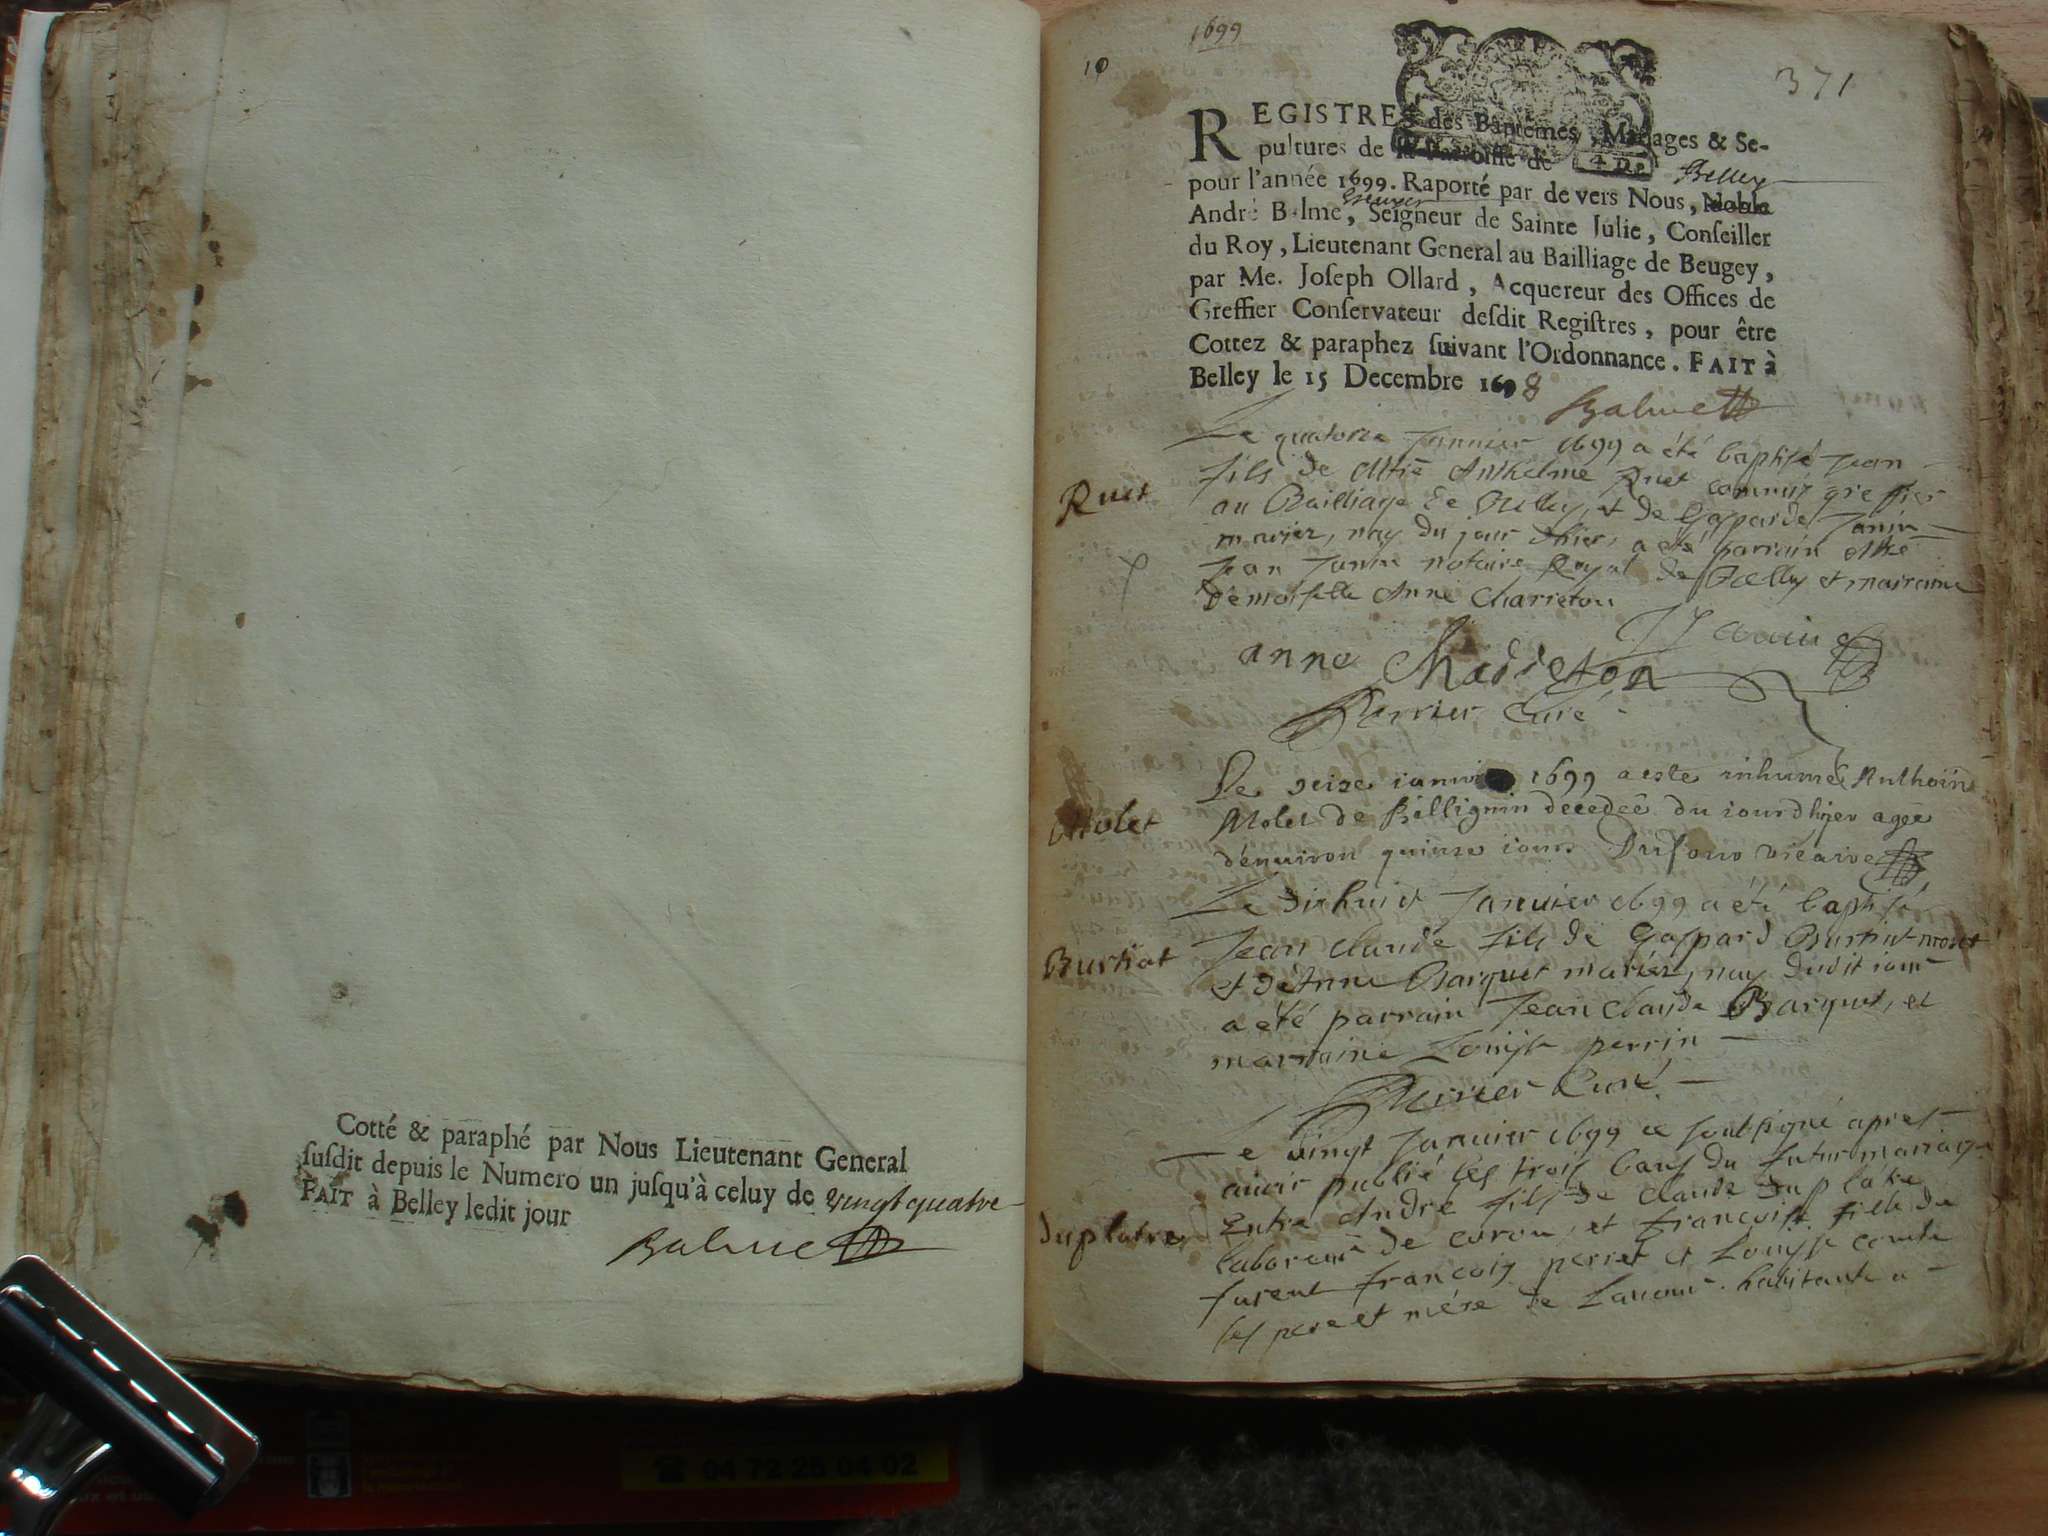 Cotté & paraphé par Nous Lieutenant General
ſuſdit depuis le Numero un juſqu'à celuy de vingt quatre
FAIT à Belley ledit jour
Balme
1699
10
371
REGISTRES des Baptêmes, Mariages & Se-
pultures de la Parroiſſe de Belley
pour l'année 1699. Raporté par de vers Nous, Noble
André Balme, Seigneur de Sainte Julie, Conſeiller
du Roy, Lieutenant General au Bailliage de Beugey,
par Me. Joſeph Ollard, Acquereur des Offices de
Greffier Conſervateur deſdit Regiſtres, pour être
Cottez & paraphez ſuivant l'Ordonnance. FAIT à
Belley le 15 Decembre 1698
Balme
Le quatorze Januier 1699 a été baptisé Jean
fils de Mtre Anthelme Ruet commis greffier
Ruet
au Bailliage de Belley, et de Gasparde Janin
mariez, nay du jour d'hier, a été parrain Mtre
Jean Janin notaire Royal de Belley et marraine
Demoiselle Anne Charreton
J Janin
anne Charreton
Perrier Curé
Le seize ianvier 1699 a este inhumé Anthoine
Molet
Molet de Billignin decedée du iourdhyer agee
d'enuiron quinze iours Dufour vicaire
Le dixhuict Januier 1699 a été baptisé
Burtiat
Jean claude fils de Gaspard Burtiat
et d'Anne Barquet mariez, nay dudit iour
a été parrain Jean Claude Barquet, et
marraine Louyse perrin
Perrier Curé
Le vingt Januier 1699 ie soubsigné apres
auoir publié les trois bans du futur mariage
Entre André fils de Claude Duplatre
Duplatre
laboreur de coron, et françoise fille de
furent françois perret et Louyse comte
ses pere et mére de habitante a